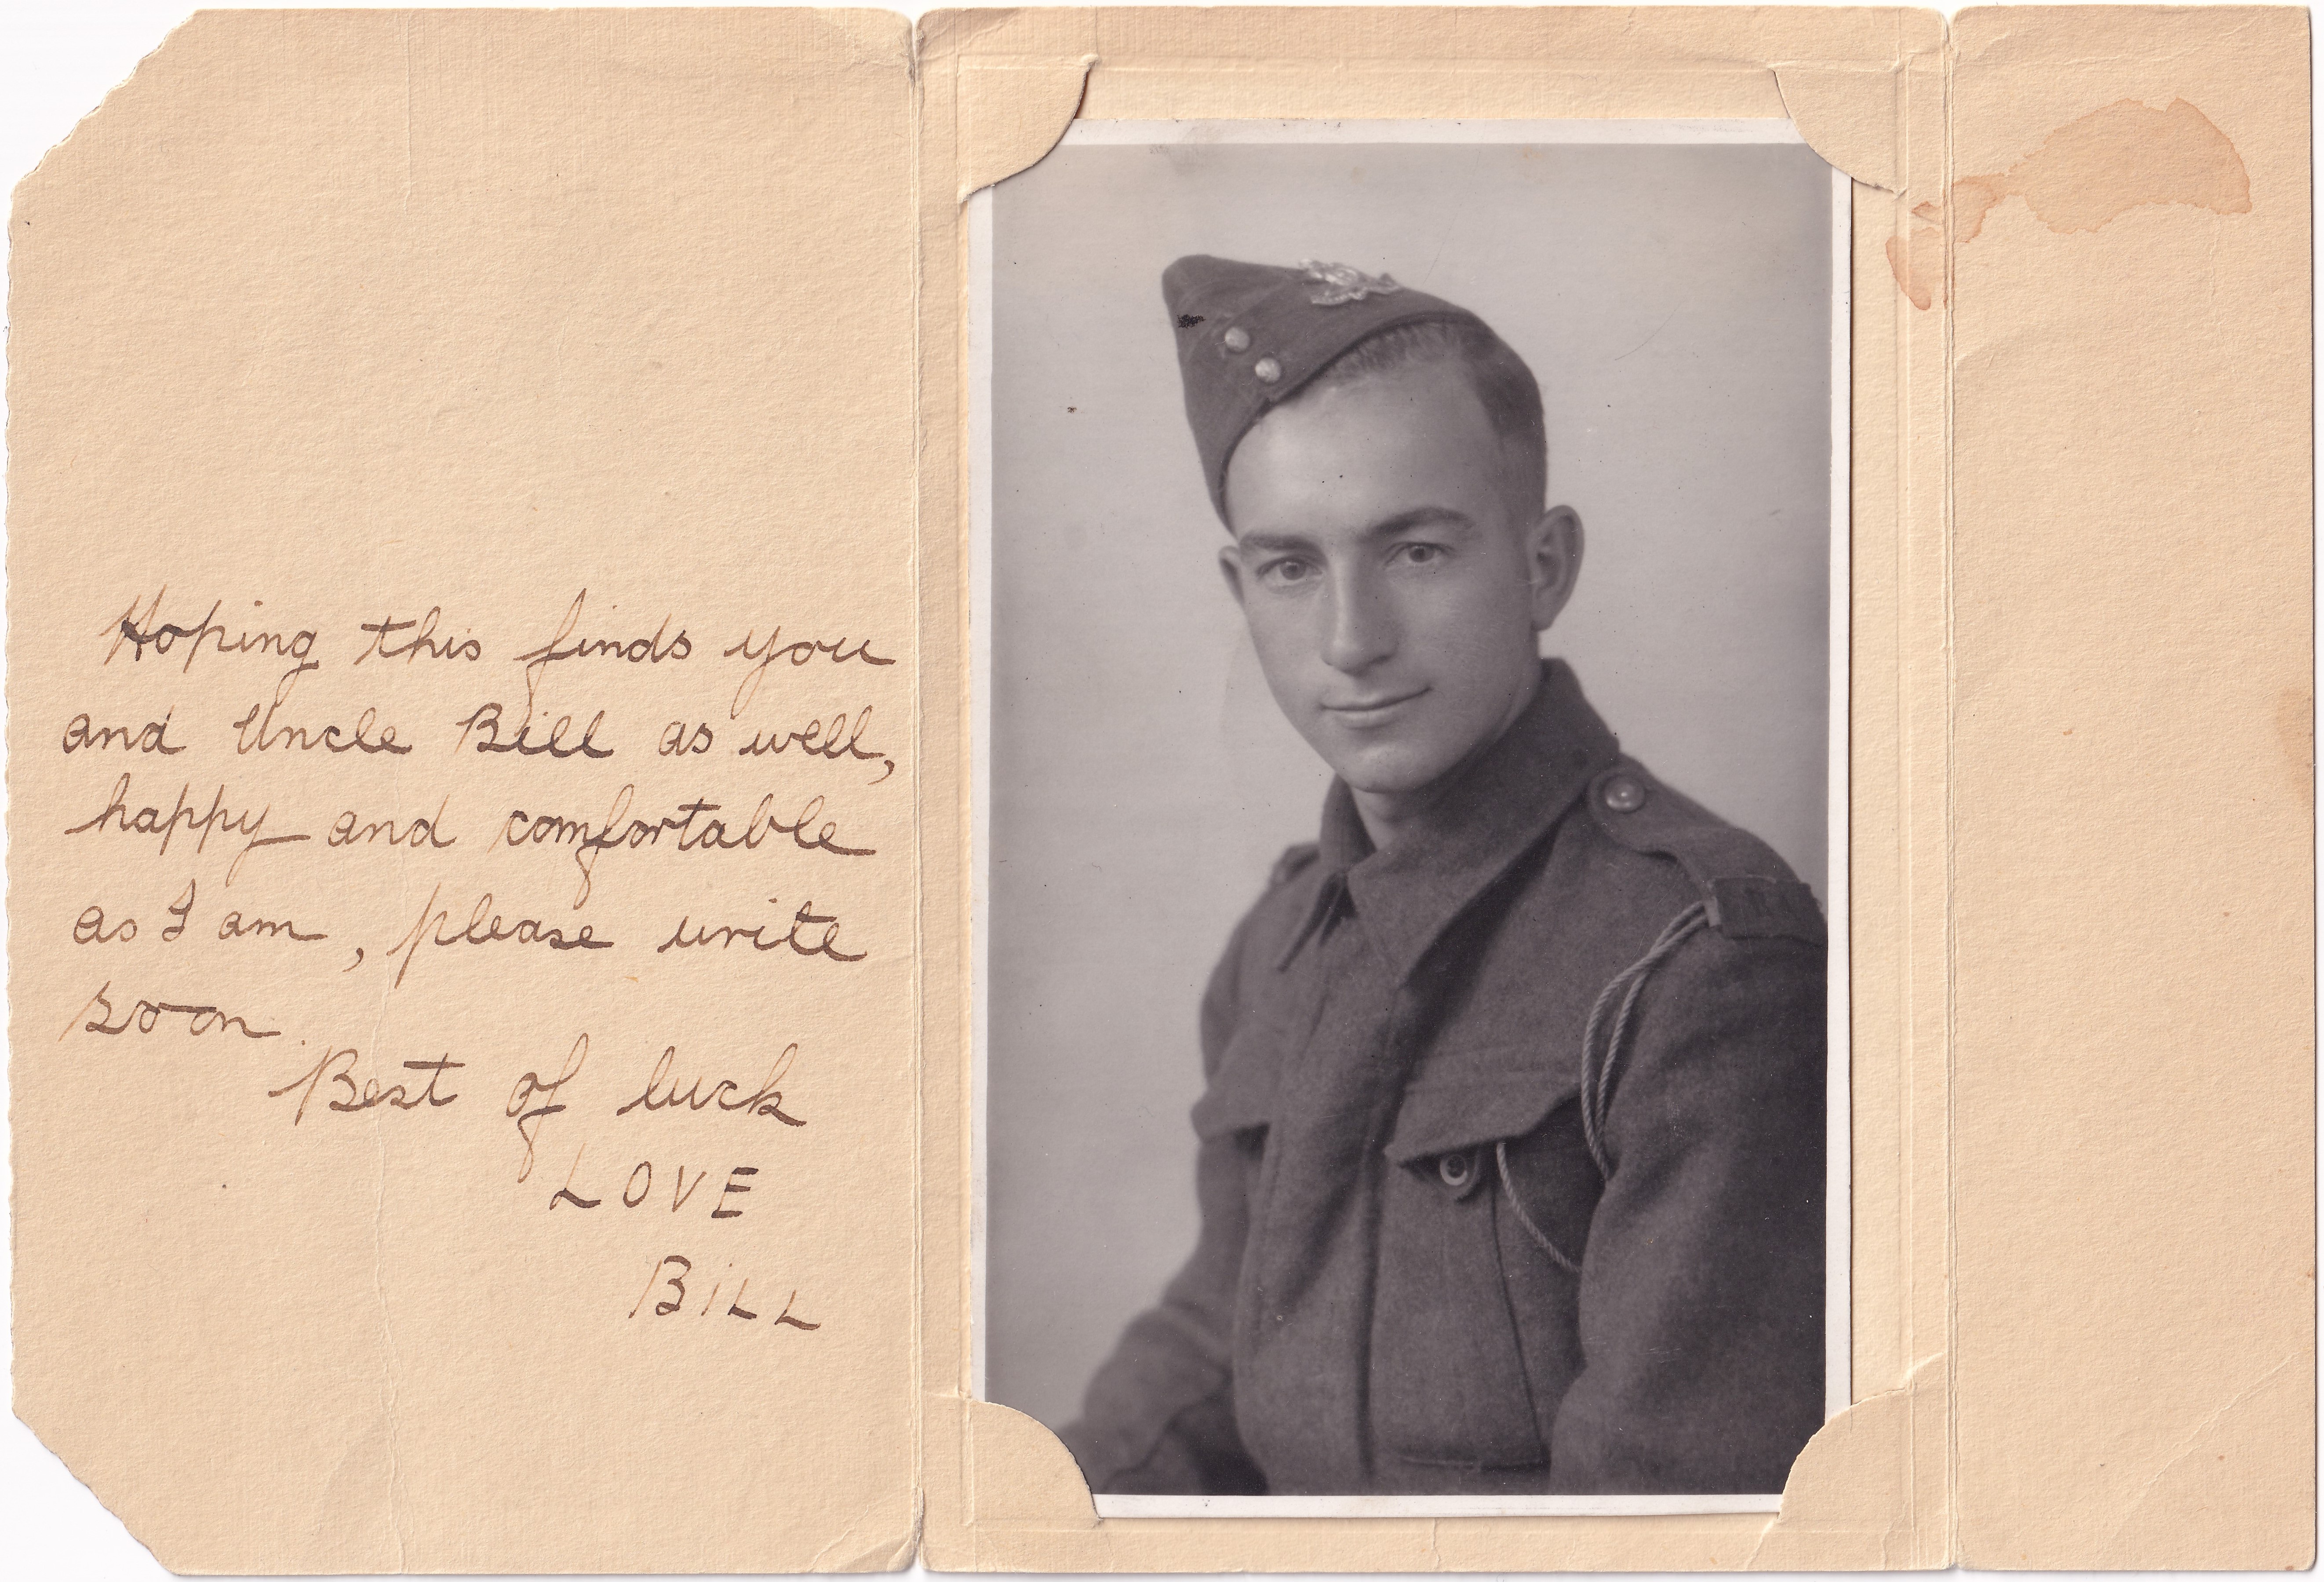 Hoping this finds you
and Uncle Bill as well,
happy and comfortable
as I am, please write
soon.
Best of luck
LOVE
BiLL